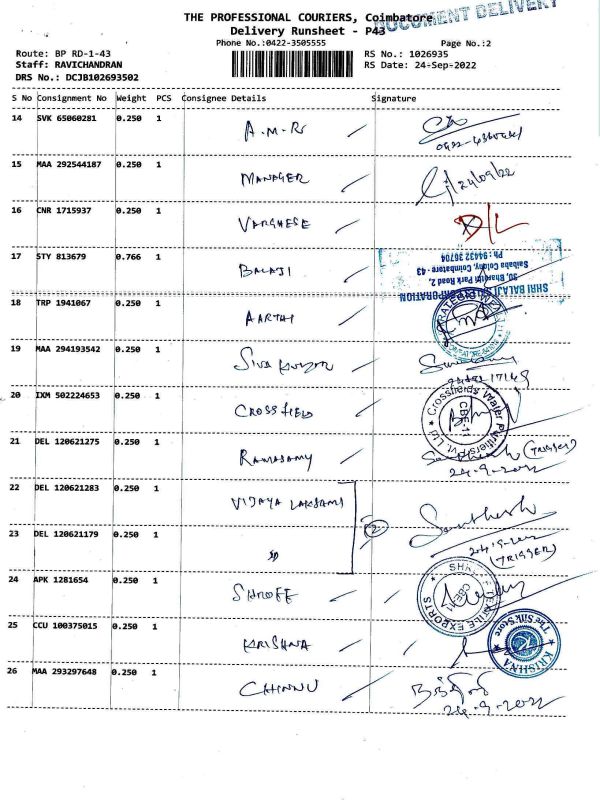 THE PROFESSIONAL COURIERS, Coimbatore
DOCUMENT DELIVERY
Delivery Runsheet - P43
Phone No.:0422-3505555
Page No.:2
Route: BP RD-1-43
RS No.: 1026935
Staff: RAVICHANDRAN
RS Date: 24-Sep-2022
DRS No.: DCJB102693502
S No Consignment No Weight PCS Consignee Details Signature
14 SVK 65060281 0.250 1 A.M.R
15 MAA 292544187 0.250 1 MANAGER 24/09/22
16 CNR 1715937 0.250 1 VARGHESE D/L
17 STY 813679 0.766 1 BALAJI
SHRI BALAJI CORPORATION
50, Bharathi Park Road 2,
Saibaba Colony, Coimbatore - 43
Ph: 94432 36704
18 TRP 1941067 0.250 1 AARTHI
19 MAA 294193542 0.250 1 Siva Kumar
20 IXM 502224653 0.250 1 CROSSFIELD
Crossfields Water Purifiers Pvt. Ltd
CBE-11
21 DEL 120621275 0.250 1 RAMASAMY (TRIGGER)
24-9-2022
22 DEL 120621283 0.250 1 VIJAYA LAKSAMI
2 Santhosh
23 DEL 120621179 0.250 1
24-9-2022
(TRIGGER)
24 APK 1281654 0.250 1 SHROFF
TEXTILE EXPORTS
CBE-11
25 CCU 100375015 0.250 1 KRISHNA
KRISHNA The Silk Store
26 MAA 293297648 0.250 1 CHINNU
24-9-2022